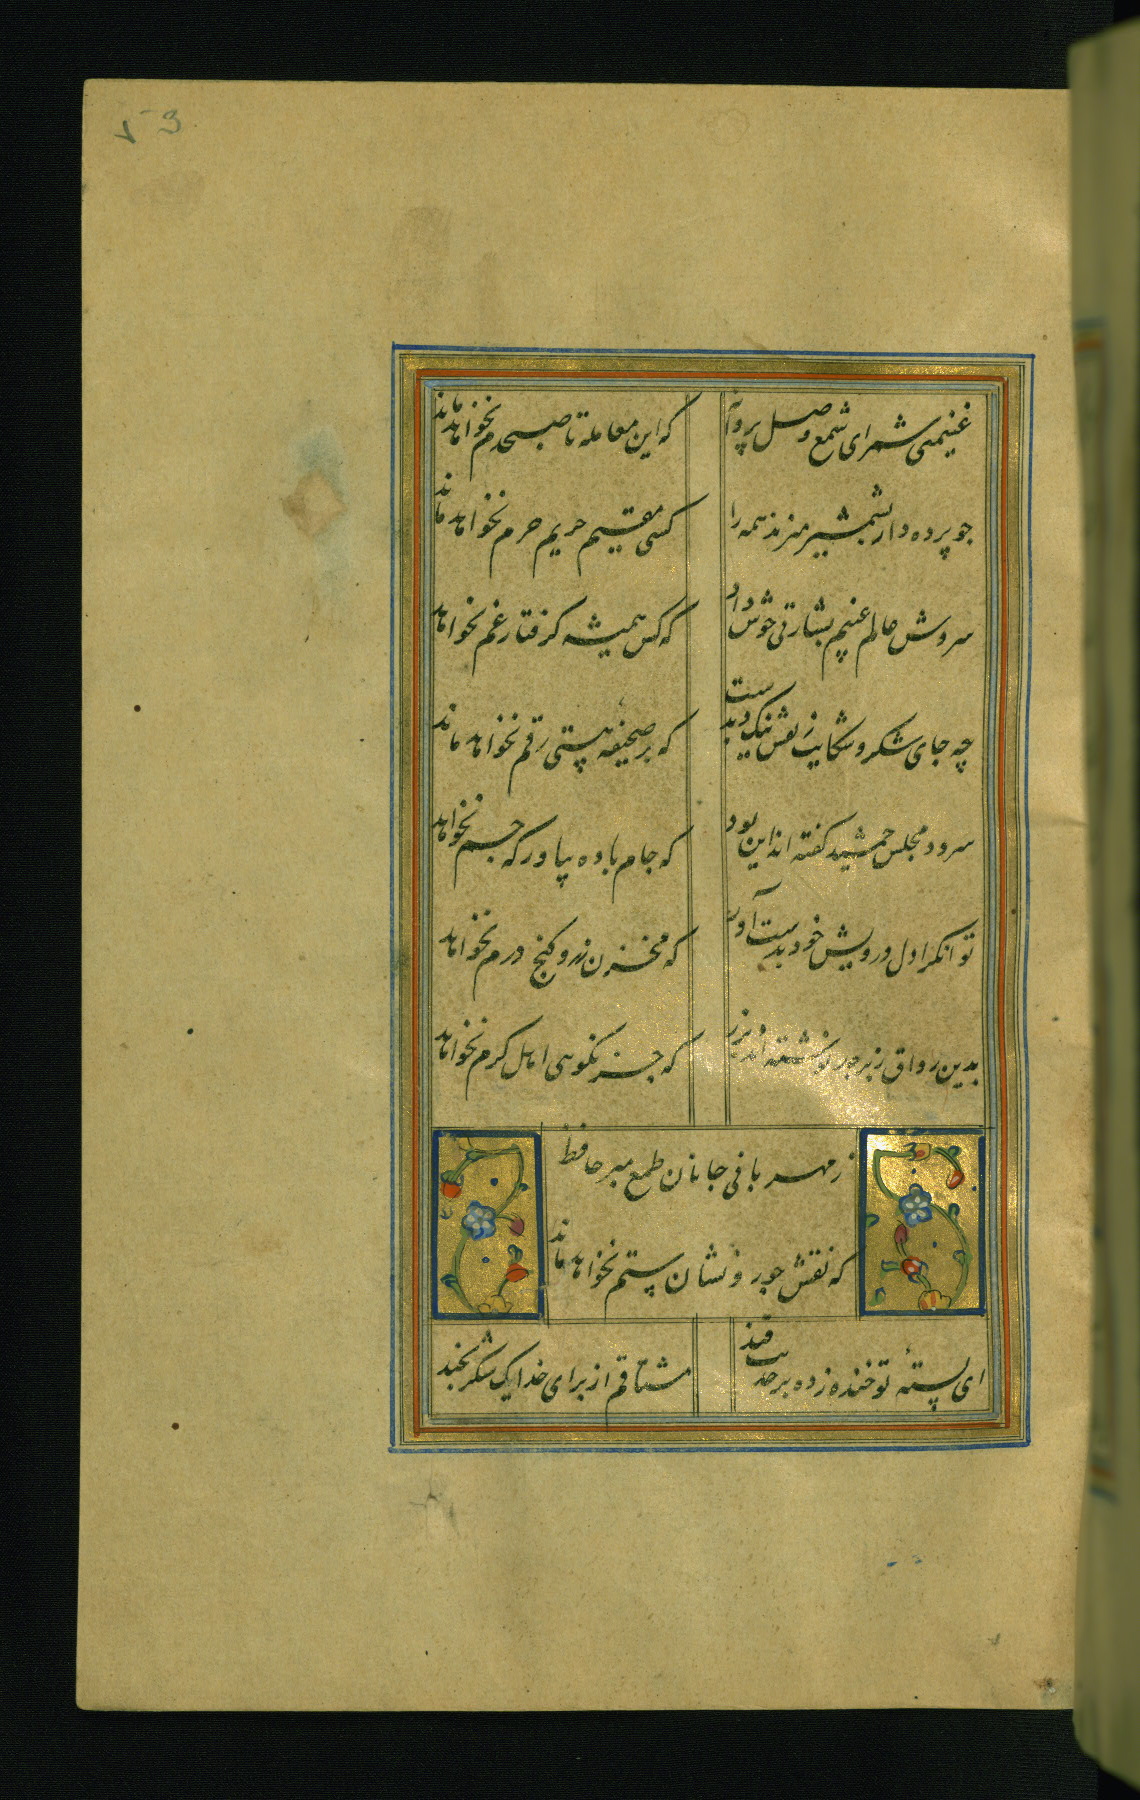 غنیمتی شمر ای شمع وصل پروانه
که این معامله تا صبحدم نخواهد ماند
چو پرده دار بشمشیر میزند همه را
کسی مقیم حریم حرم نخواهد ماند
سروش عالم غیبم بشارتی خوش داد
که کس همیشه گرفتار غم نخواهد
چه جای شکر و شکایت ز نقش نیک و بدست
که بر صحیفه هستی رقم نخواهد ماند
سرود مجلس جمشید گفته اند این بود
که جام باده بیاور که جم نخواهد
توانگرا دل درویش خود بدست آور
که مخزن زر و گنج درم نخواهد
بدین رواق زبرجد نوشته اند بزر
که جز نکویی اهل کرم نخواهد
ز مهربانی جانان طمع مبر حافظ
که نقش جور و نشان ستم نخواهد ماند
ای پسته تو خنده زده بر حدیث قند
مشتاقم از برای خدا یک شکر بخند